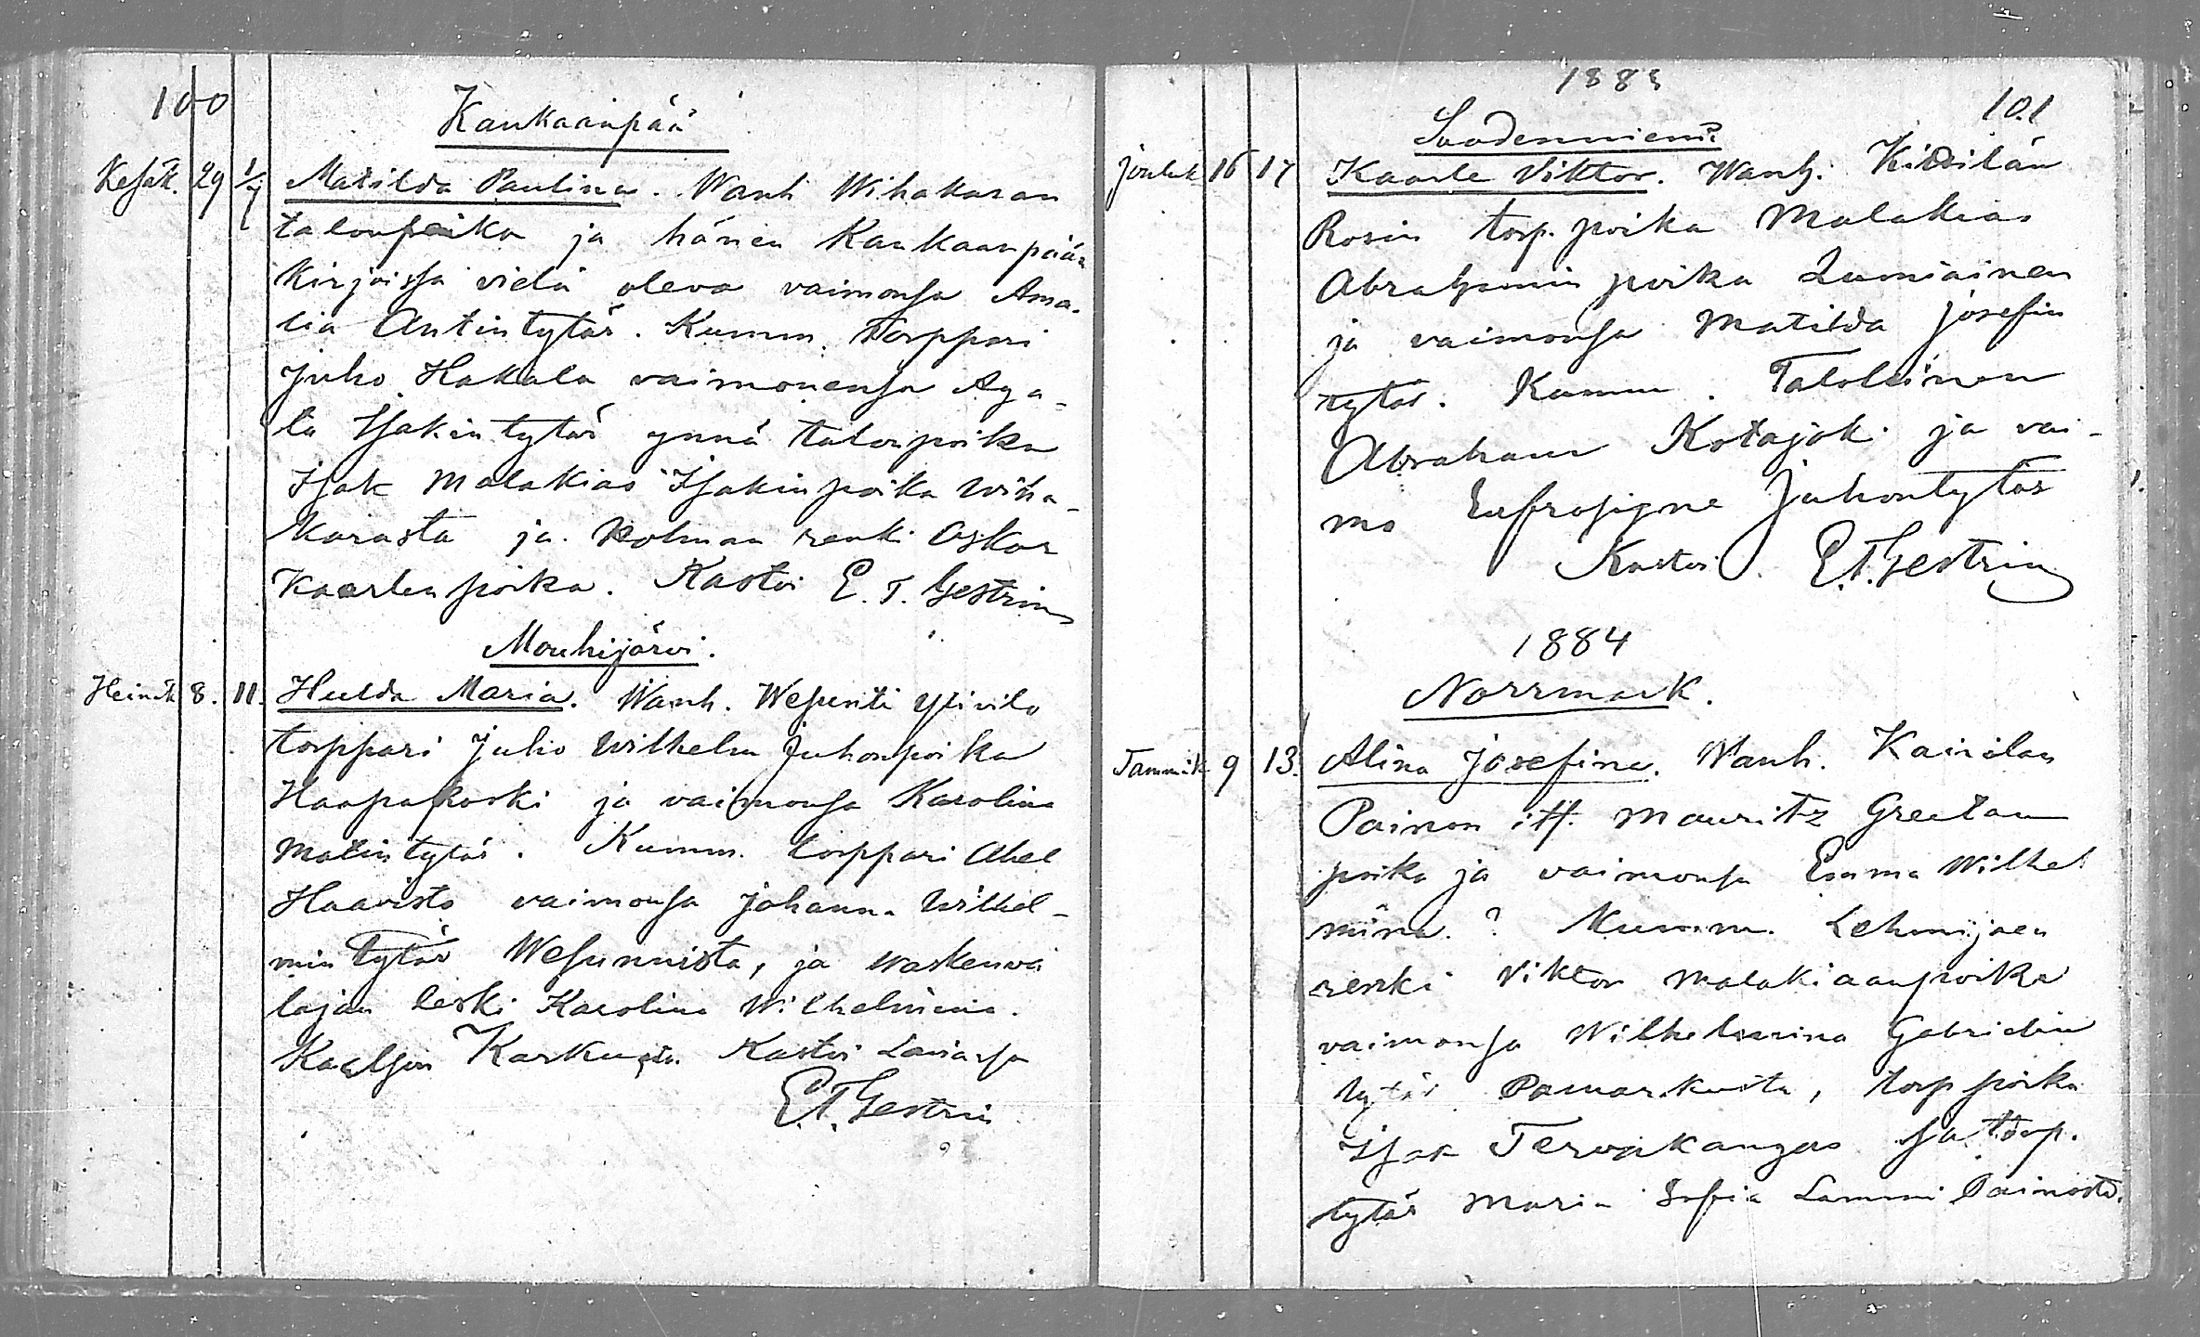 100
Kankaanpää
Kesäk. 29 1/7 Matilda Paulina. Wanh Wihakaran
talonpoika ja hänen Kankaanpään
kirjoissa vielä oleva vaimonsa Ama-
lia Antintytär. Kumm. Torppari
Juho Hakala vaimonensa Aga-
ta Isakintytär ynnä talonpoika
Isak Malakias Isakinpoika Wiha-
karasta ja Holman renki Oskar
Kaarlenpoika. Kastoi E. T. Gestrin
Mouhijärvi.
Heinäk 8. 11. Hulda Maria. Wanh. Wesunti
torppari Juho Wilhelm Juhonpoika
Haapakoski ja vaimonsa Karolina
Matintytär. Kumm. torppari Abel
Haavisto vaimonsa Johanna Wilhel-
min tytär Wesunnista, ja waskenva
lajan leski Karolina Wilhelmiina
Karkusta Kastoi Laviassa
E.T. Gestrin
1883
101
Suodenniemi
Jouluk 16 17 Kaarle Viktor. Wanh. Kittilän
Rosin torp. poika Malakias
Abrahamin poika Lumiainen
ja vaimonsa Matilda Josefin
tytär. Kumm. Talollinen
Abraham Kotajoki ja vai-
mo Eufrosyne Juhontytär
Kastoi E.T. Gestrin
1884
Norrmark.
Tammik 9 13. Alina Josefina. Wanh. Kairilan
Painon itt. Mauritz Greetan
poika ja vaimonsa Emma Wilhel
mina. ? Kumm. Lehmijoen
renki Viktor Malakiaanpoika
vaimonsa Wilhelmina Gabrielin
tytär Pomarkusta, torp poika
Isak Tervakangas ja torp.
tytär Maria Sofia Lammi Painosta.